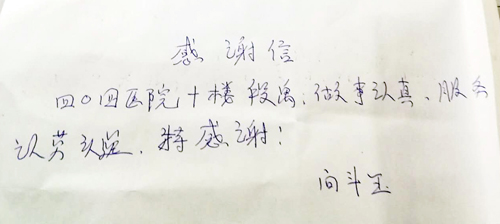 感谢信
四0四医院十楼段禹,做事认真、服务
认劳认怨.特感谢!
向斗玉